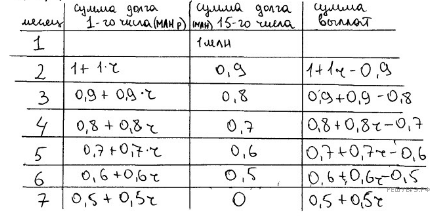 месяц сумма долга 1-го числа (млн р) сумма долга (млн) 15-го числа сумма выплат
1 1 млн
2 1 + 1·r 0,9 1+1r-0,9
3 0,9 + 0,9·r 0,8 0,9+0,9-0,8
4 0,8 + 0,8r 0,7 0,8+0,8r-0,7
5 0,7+0,7·r 0,6 0,7+0,7r-0,6
6 0,6+0,6r 0,5 0,6+0,6r-0,5
7 0,5 + 0,5r 0 0,5 + 0,5r